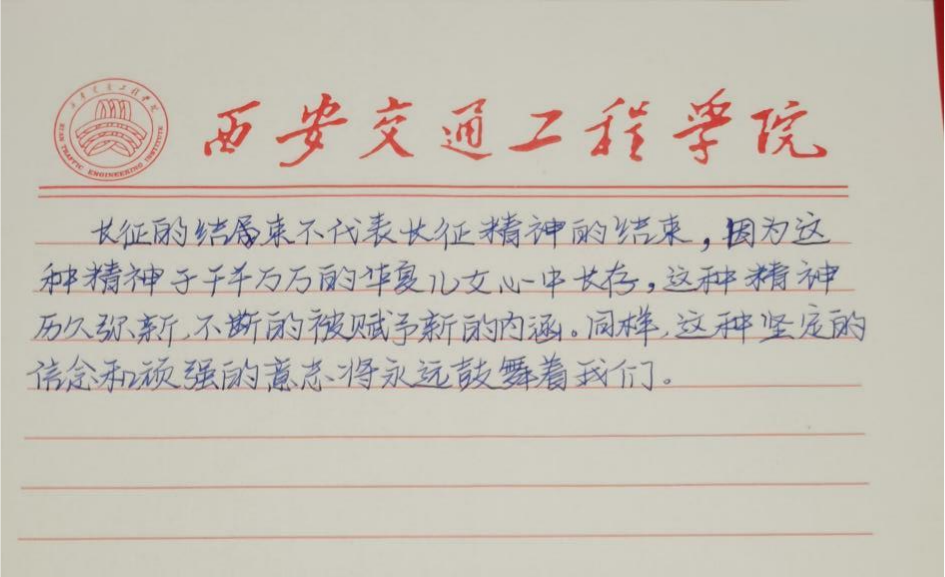 西安交通工程学院
XI'AN TRAFFIC ENGINEERING INSTITUTE
西安交通工程学院
长征的结束不代表长征精神的结束，因为这
种精神于千千万万的华夏儿女心中长存，这种精神
历久弥新，不断的被赋予新的内涵。同样，这种坚定的
信念和顽强的意志将永远鼓舞着我们。